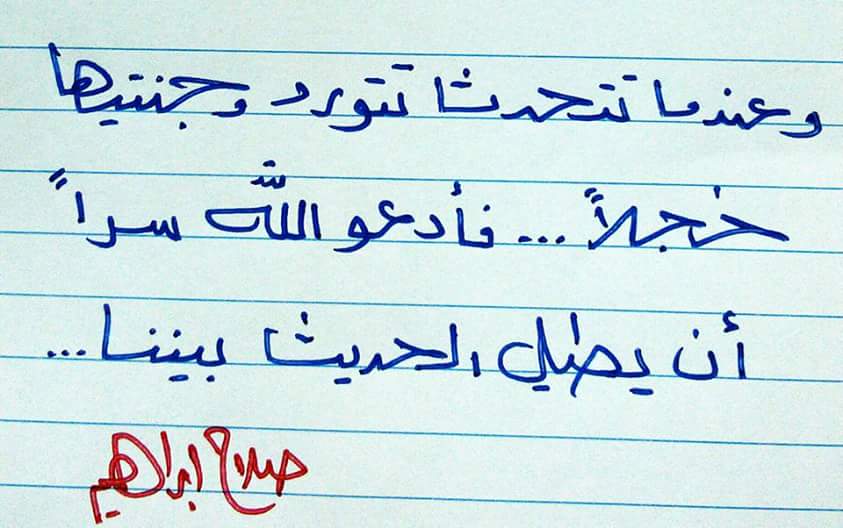 وعندما تتحدث تتورد وجنتيها
خجلاً ... فأدعو الله سراً
أن يطيل الحديث بيننا ...
صلاح ابراهيم